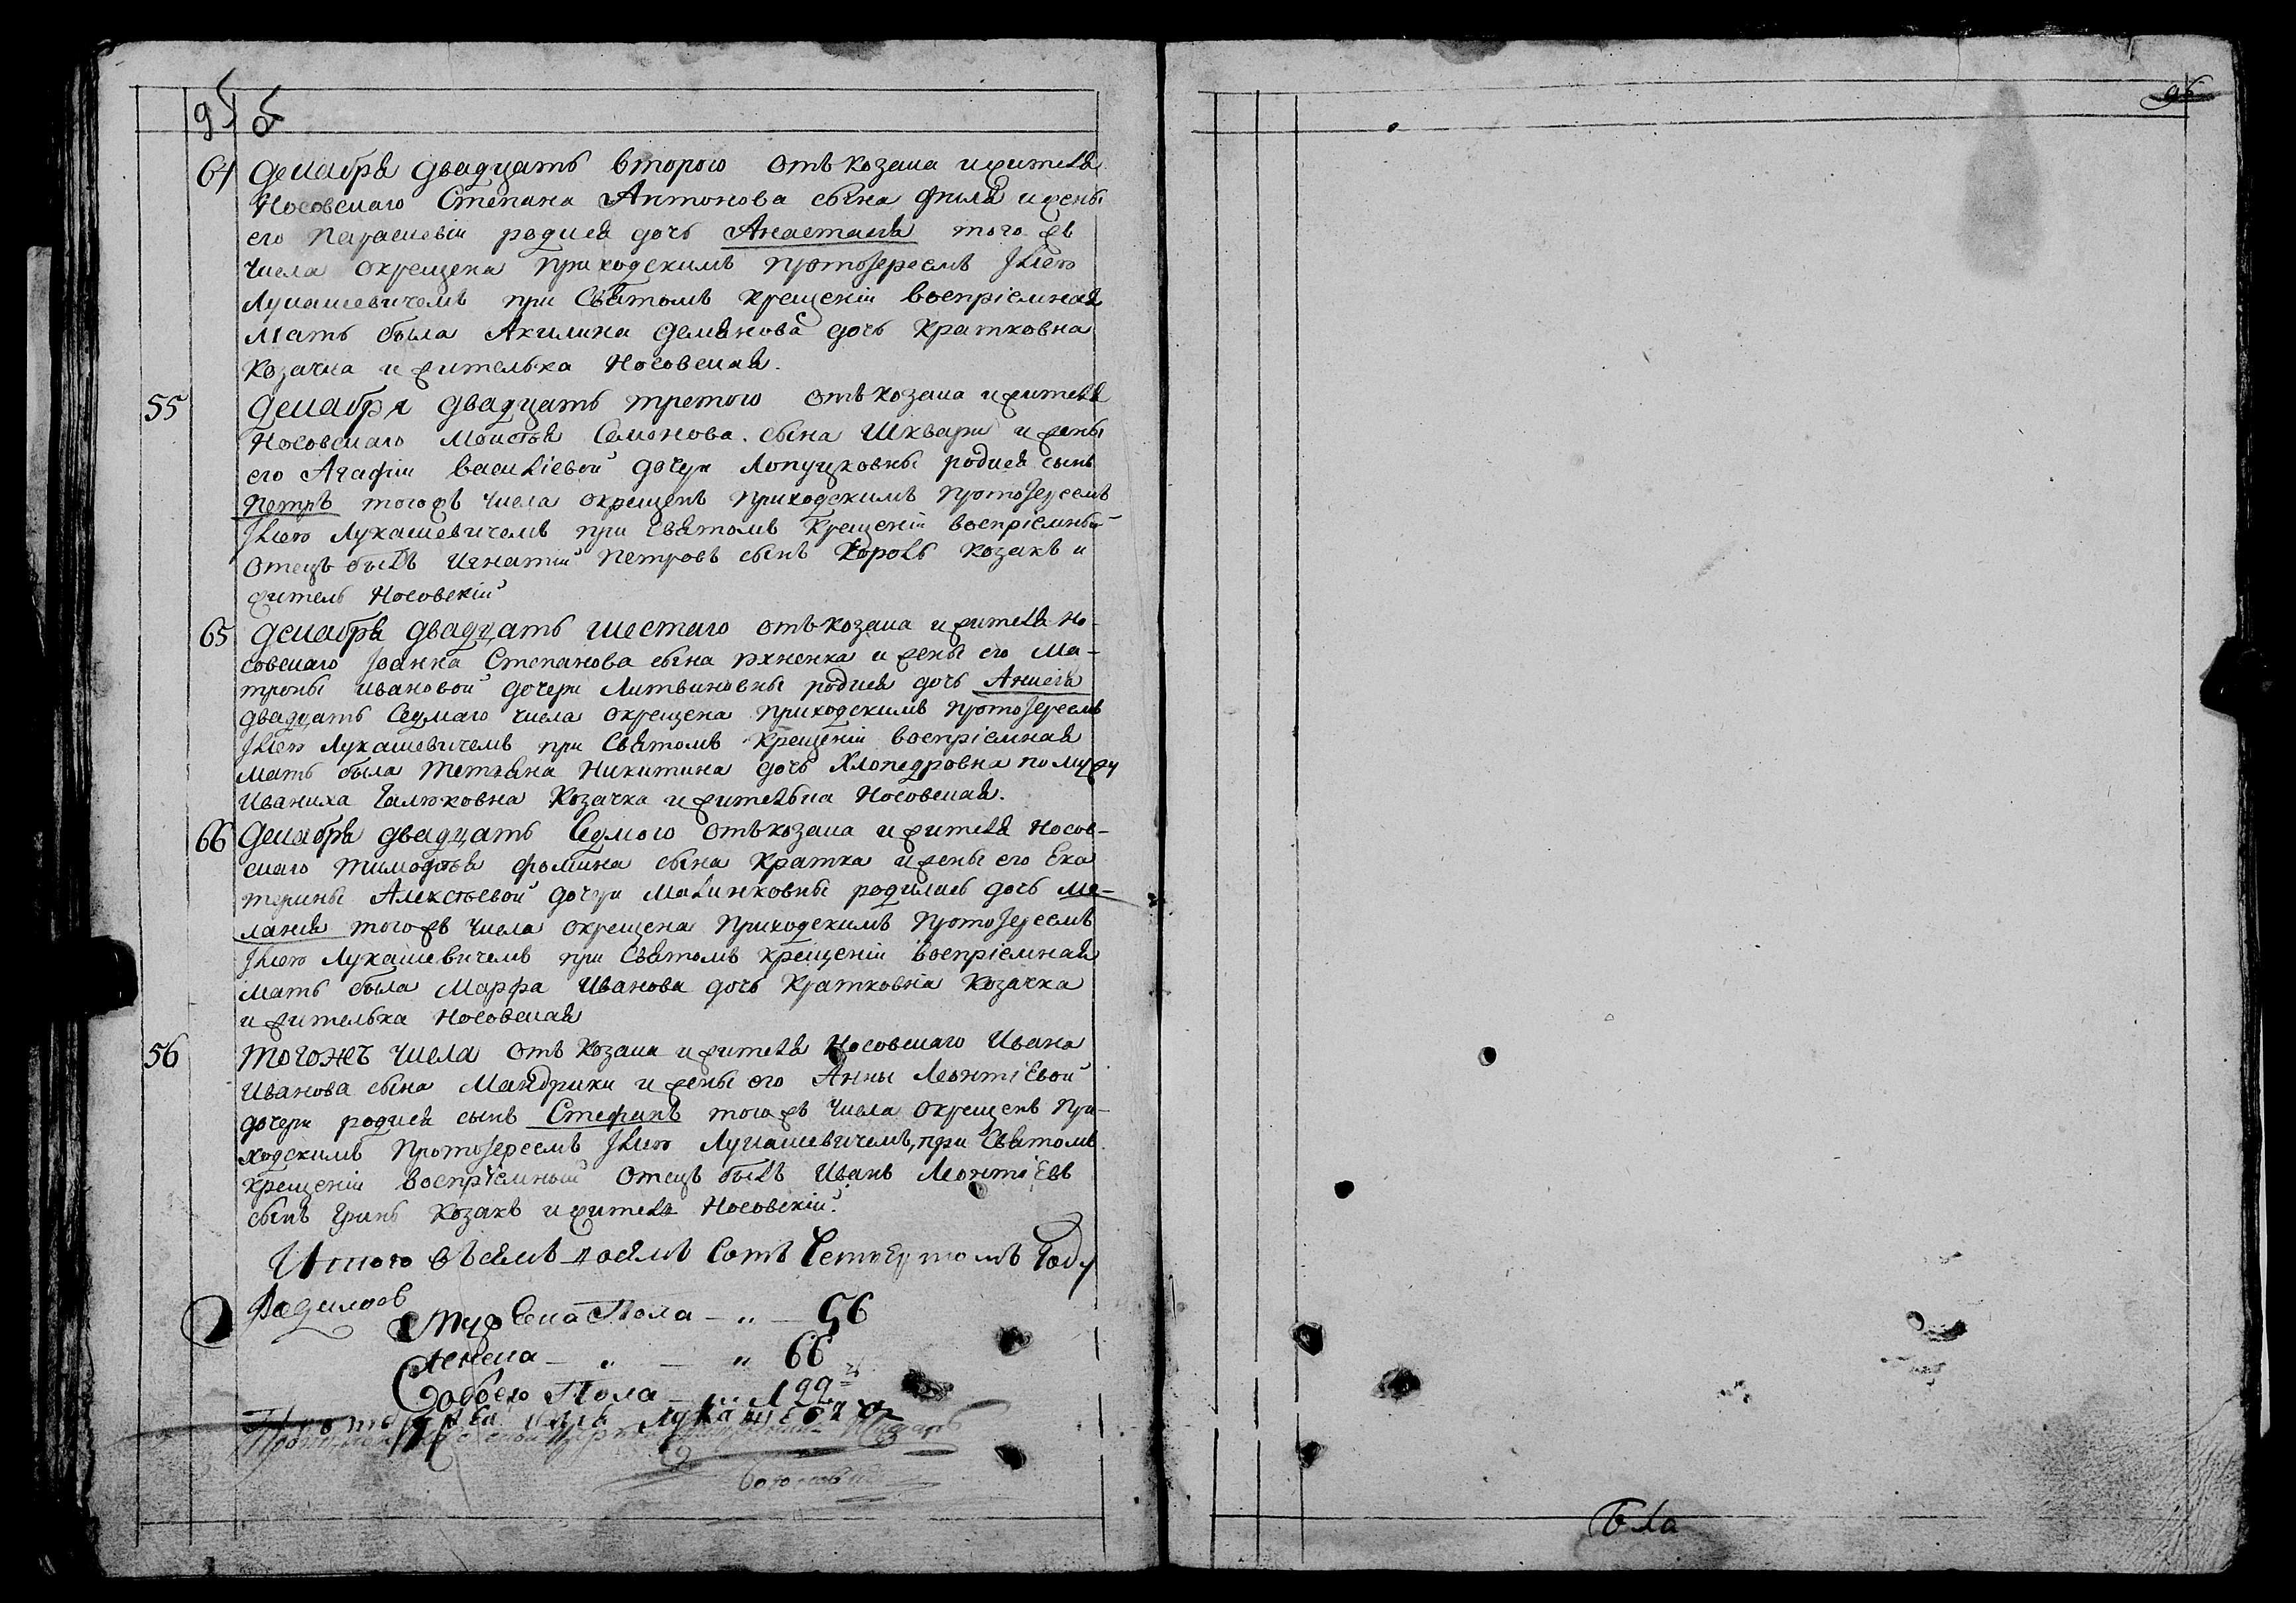 95 б
64 Декабря двадцать второго отъ козака и жителя
Носовскаго Степана Антонова сына Филя и жены
его Параскевіи родися дочь Анастасія того жъ
числа окрещена приходскимъ протоіереемъ Іліею
Лукашевичемъ при Святомъ крещеніи воспріемная
мать была Акилина Демянова дочь Кратковна
козачка и жителька Носовская.
55 Декабря двадцать третого отъ козака и жителя
Носовскаго Моисѣя Семонова сына Шквари и жены
его Агафіи Василіевой дочери Лопушковны родися сынъ
Петръ того жъ числа окрещенъ приходскимъ протоіереемъ
Іліею Лукашевичемъ при Святомъ крещеніи воспріемный
отецъ былъ Игнатій Петровъ сынъ Король козакъ и
житель Носовскій
65 Декабря двадцать шестаго отъ козака и жителя Но-
совскаго Іоанна Степанова сына и жены его Ма-
троны Ивановой дочери Литвиновны родися дочь Анисія
двадцать седмаго числа окрещена приходскимъ протоіереемъ
Іліею Лукашевичемъ при Святомъ крещеніи воспріемная
мать была Тетяна Никитина дочь по мужу
Иваниха Галюковна козачка и жителька Носовская.
66 Декабря двадцать седмого отъ козака и жителя Носов-
скаго Тимофѣя Фомина сына Кратка и жены его Ека
терины Алексѣевой дочери Малинковны родилась дочь Ме-
ланія того жъ числа окрещена приходскимъ протоіереемъ
Іліею Лукашевичемъ при Святомъ крещеніи воспріемная
мать была Марфа Иванова дочь Кратковна козачка
и жителька Носовская
56 Тогожъ числа отъ козака и жителя Носовскаго Ивана
Иванова сына Мандрики и жены его Анны Леонтіевой
дочери родися сынъ Стефанъ того жъ числа окрещенъ при-
ходскимъ протоіереемъ Іліею Лукашевичемъ, при Святомъ
крещеніи воспріемный отецъ былъ Иванъ Леонтіевъ
сынъ Гринь козакъ и житель Носовскій.
Итого въ осемъ сотъ четвертомъ году
родилось
Мужеска пола — „ — 56
Женска — „ — „ 66
Обоего пола — 122
Лукашевичъ
96
Бла